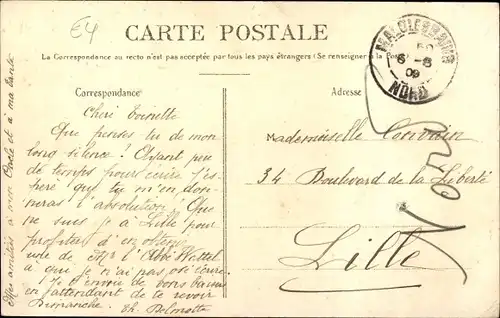 E4
CARTE POSTALE
La Correspondance au recto n'est pas acceptée par tous les pays étrangers (Se renseigner à la Poste)
Correspondance
Adresse
MALO-LES-BAINS
6-8
09
NORD
Cheri Toinette
Que penses tu de mon
long silence! Ayant peu
de temps pour écrire j'es-
père que tu m'en don-
neras l'absolution! Que
ne suis je à Lille pour
profiter d'
de Mr l'Abbé Wattel
à que je n'ai pas osé écrire.
Je t'envoie de bons baisers
en attendant de te revoir
Dimanche.
Mes amitiés à mon Oncle et à ma tante
Mademoiselle
34 Boulevard de la Liberté
Lille
Nord